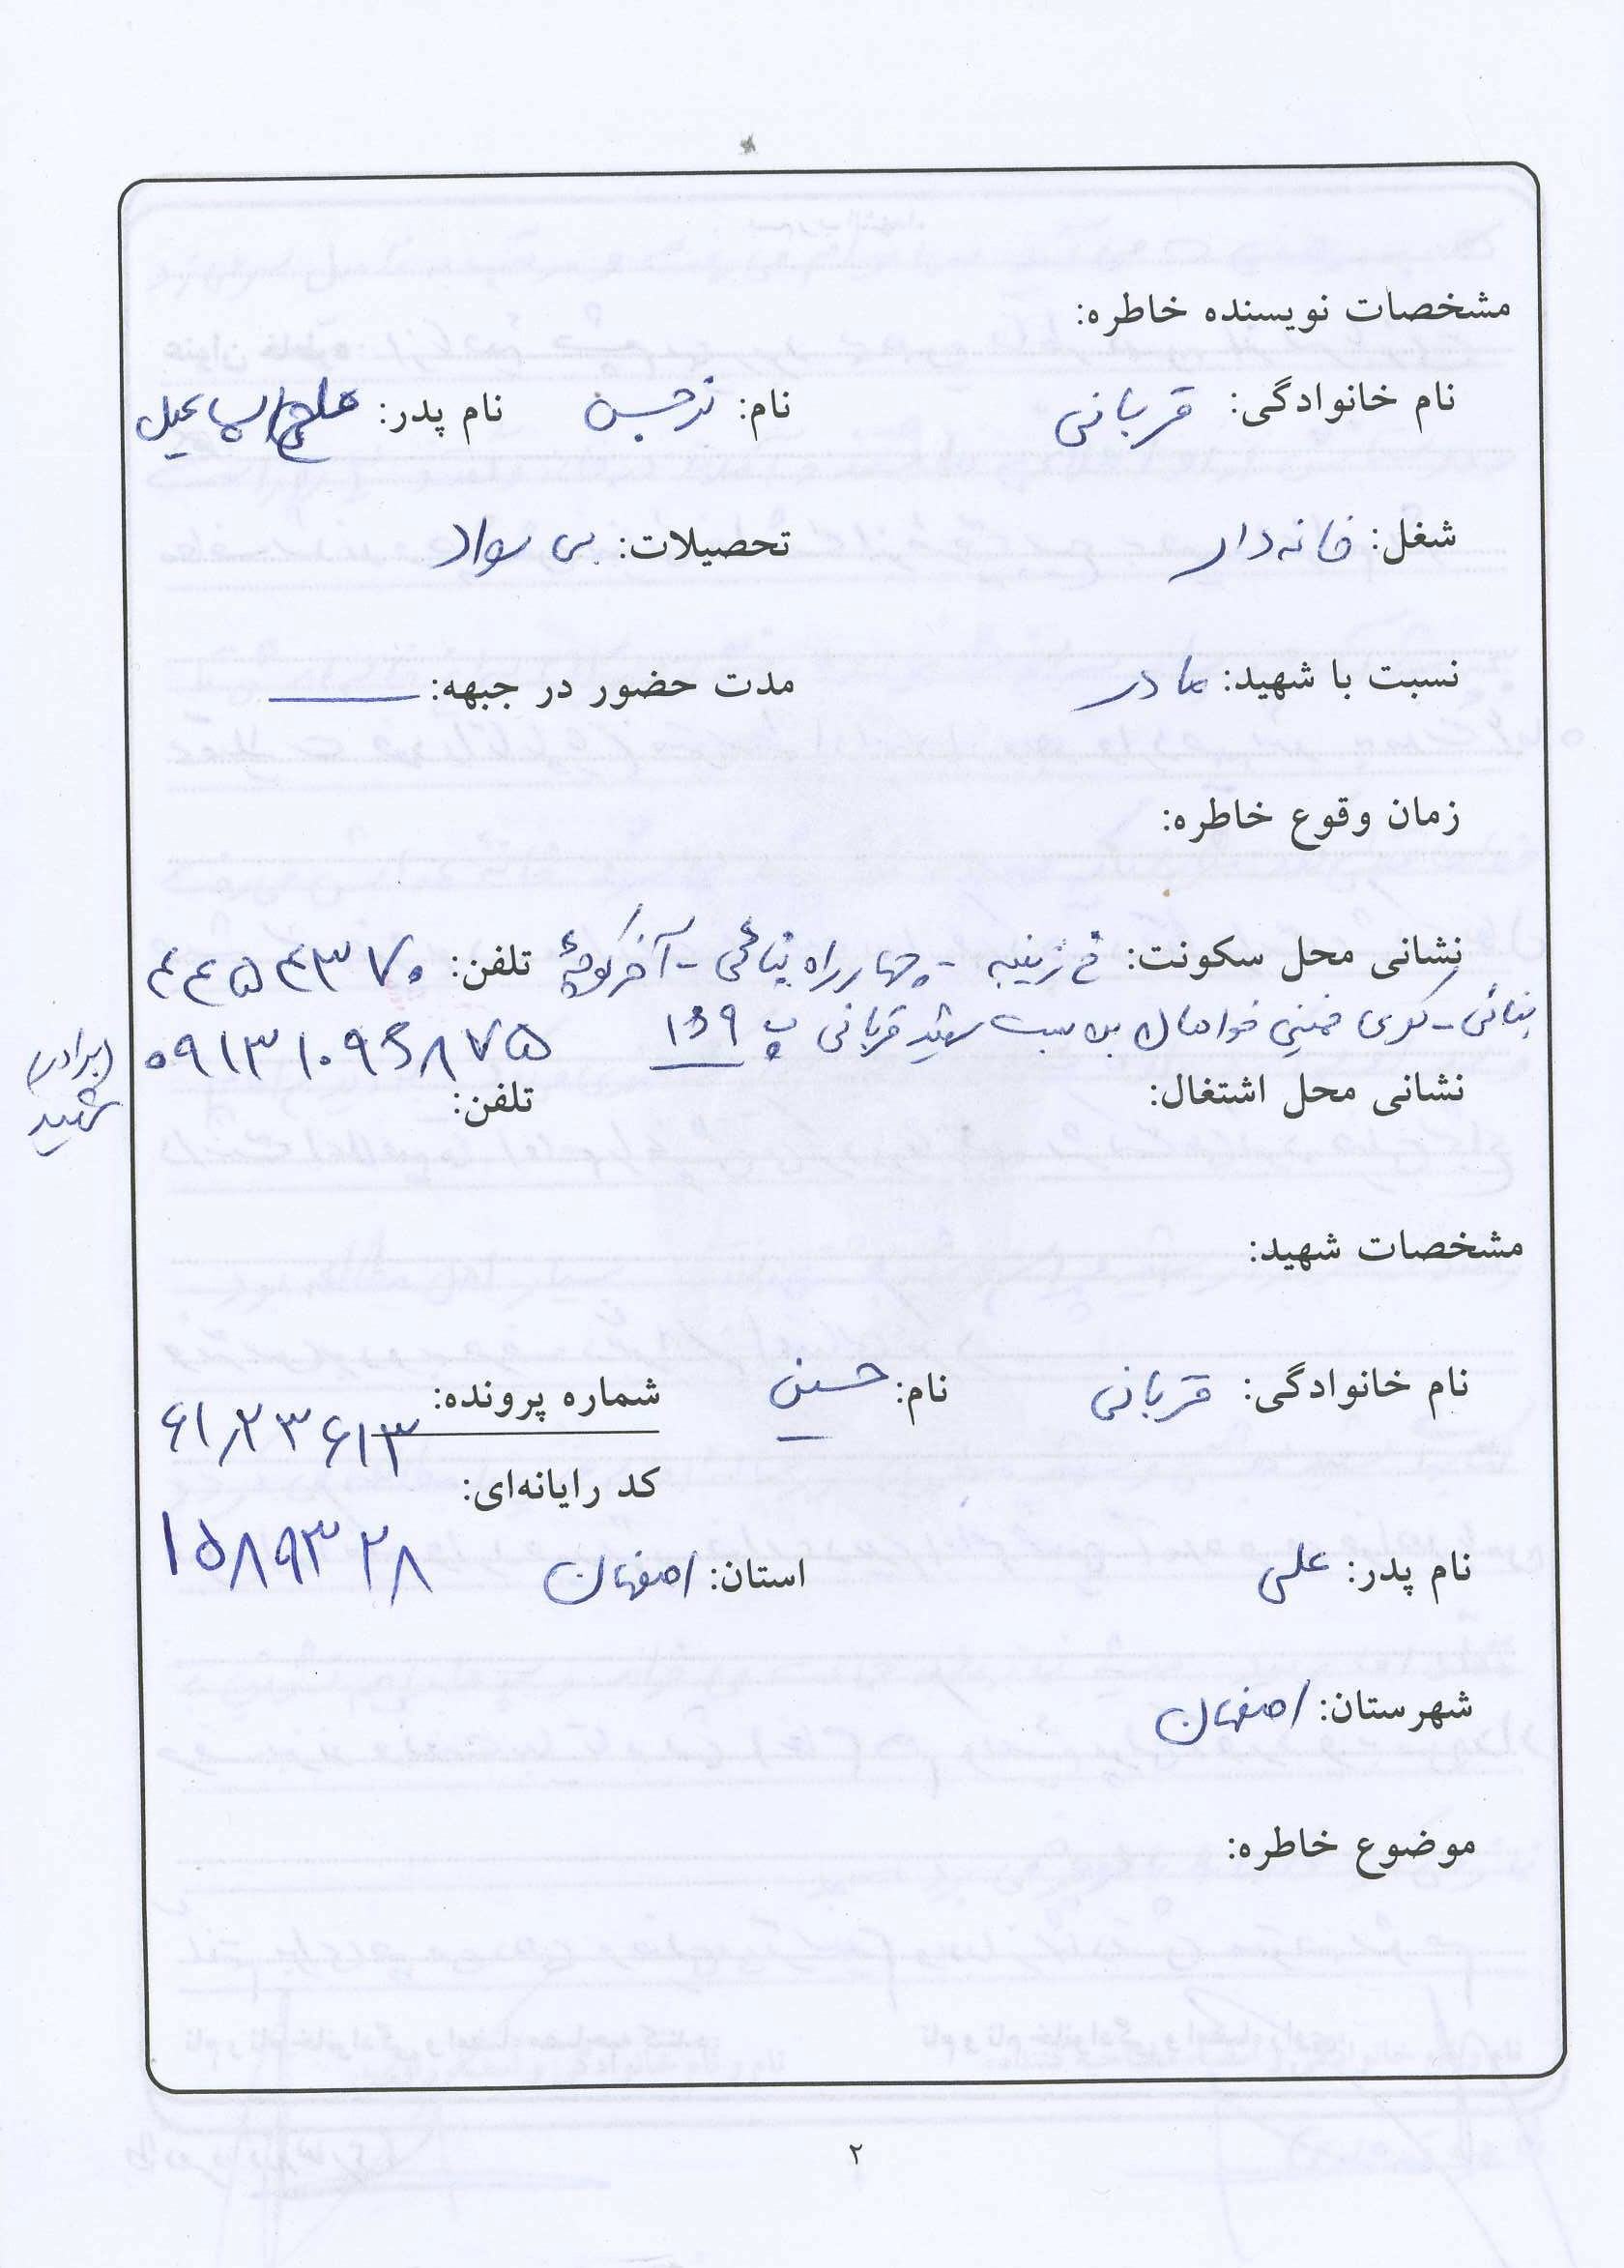 مشخصات نویسنده خاطره:
نام خانوادگی: قربانی نام: نرجس نام پدر: اسماعیل
شغل: خانه‌دار تحصیلات: بی سواد
نسبت با شهید: مادر مدت حضور در جبهه: ــــ
زمان وقوع خاطره:
نشانی محل سکونت: خ زینبیه - چهارراه بنائی - آخر کوچهٔ تلفن: ۴۴۵۴۳۷۰
بنائی - کوی خمینی بن بست شهید قربانی پ ۱۳۹ ۰۹۱۳۱۰۹۶۸۷۵ (برادر شهید)
نشانی محل اشتغال: تلفن:
مشخصات شهید:
نام خانوادگی: قربانی نام: حسین شماره پرونده: ۶۱/۲۳۶۱۳
کد رایانه‌ای: ۱۵۸۹۳۲۸
نام پدر: علی استان: اصفهان
شهرستان: اصفهان
موضوع خاطره:
۲